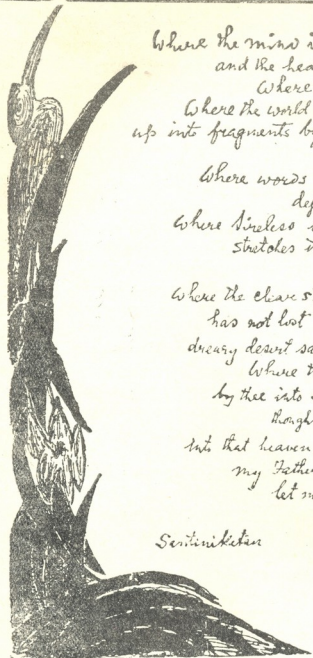 Where the mind i
and the hea
Where
Where the world
up into fragments by
Where words
de
Where tireless
stretches i
Where the clear s
has not lost
dreary desert sa
Where t
by thee into
though
Into that heaven
my Father
let m
Santiniketan